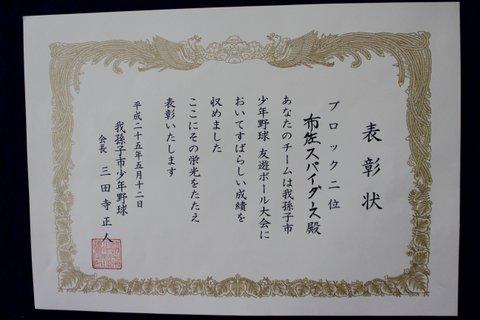 表彰状
ブロック二位
布佐スパイダース殿
あなたのチームは我孫子市
少年野球 友遊ボール大会に
おいてすばらしい成績を
収めました
ここにその栄光をたたえ
表彰いたします
平成二十五年五月十二日
我孫子市少年野球
会長 三田寺正人